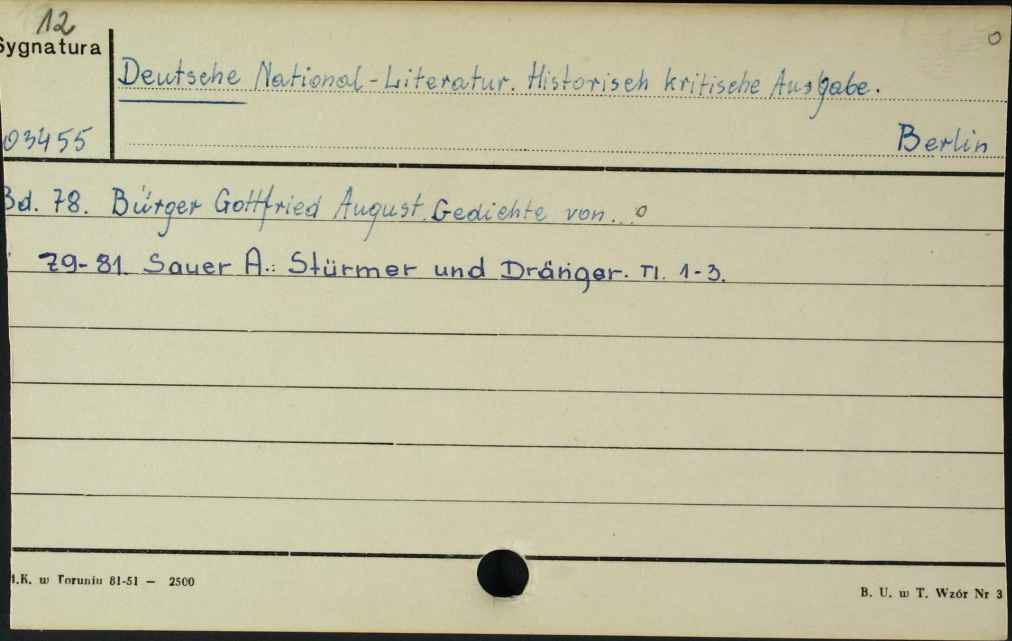 12
Sygnatura
Deutsche National-Literatur. Historisch kritische Ausgabe.
03455
Berlin
Bd. 78. Bürger Gottfried August. Gedichte von...
79-81. Sauer A.: Stürmer und Dränger. Tl. 1-3.
.K. w Toruniu 81-51 — 2500
B. U. w T. Wzór Nr 3